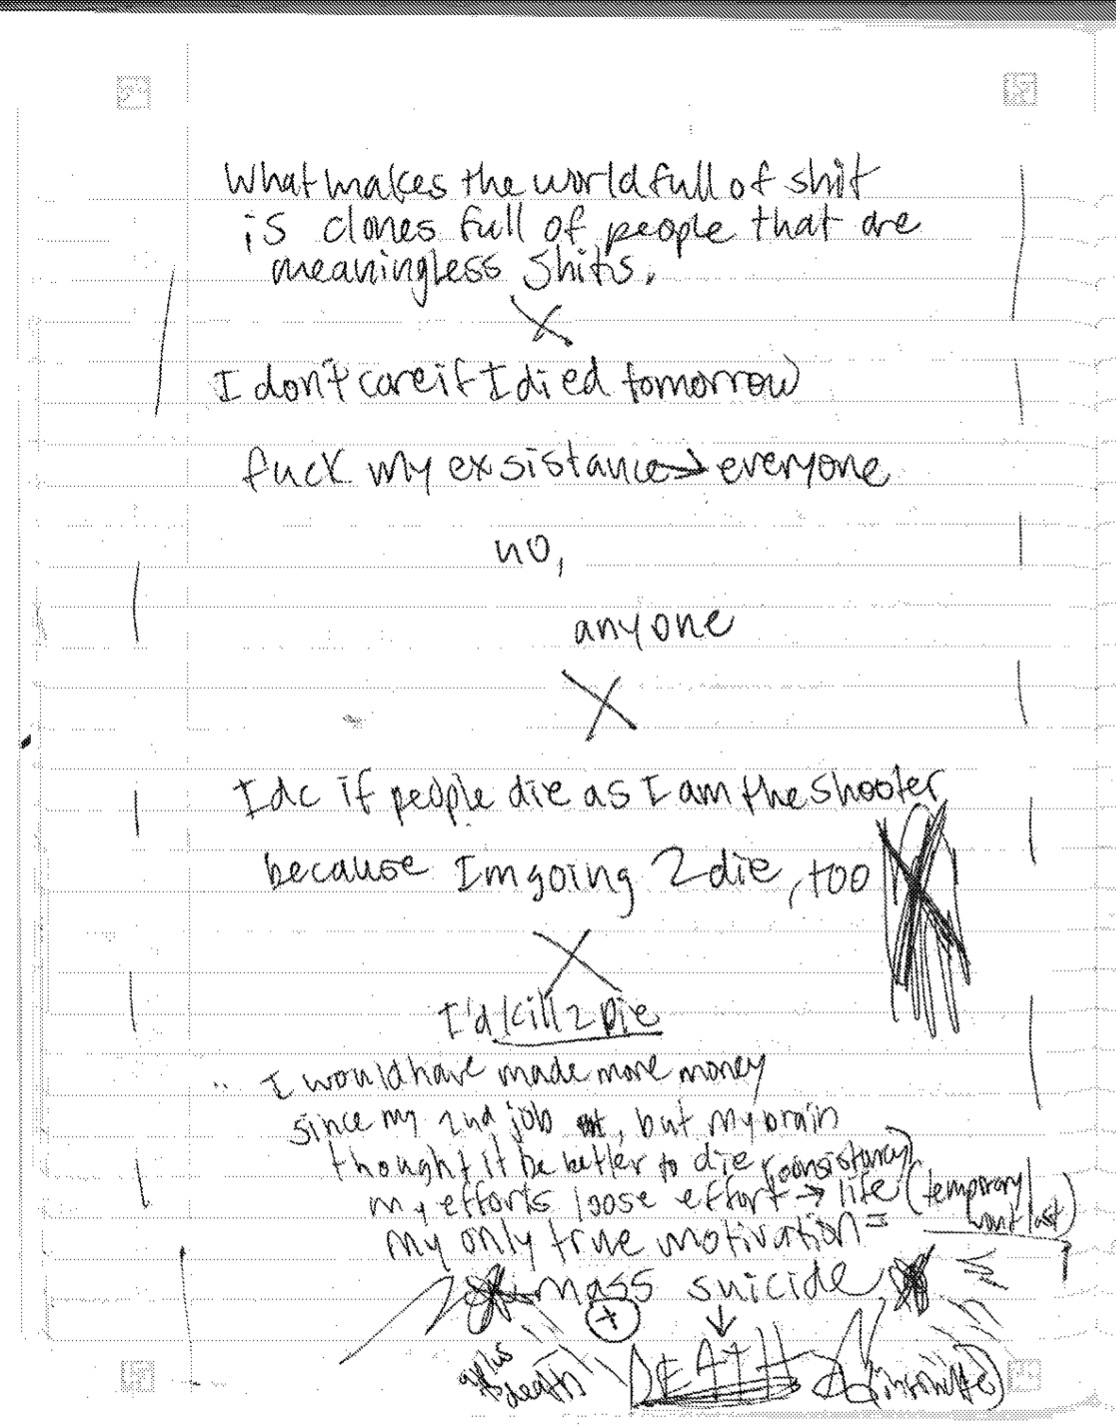 What makes the world full of shit
is clones full of people that are
meaningless shits.
I don't care if I died tomorrow
fuck my exsistance → everyone
no,
anyone
Idc if people die as I am the shooter
because Im going 2 die, too
I'd kill 2 Die
I would have made more money
since my 2nd job, but my brain
thought it be better to die, consistancy
my efforts loose effort → life (temporary
wont last)
my only true motivation =
mass suicide
+ ↓
plus death DEATH (infinite)